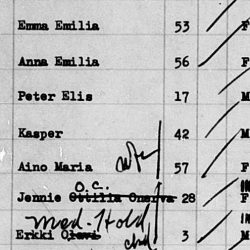 Emma Emilia 53 F
Anna Emilia 56 F
Peter Elis 17 M
Kasper 42 M
Aino Maria 57 F
O.C.
Jennie Ottilia Onerva 28 F
Med. Hold
Erkki Olavi 3 M